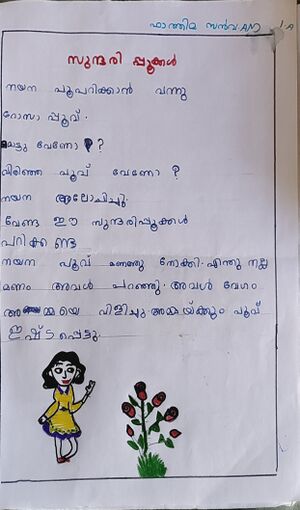 ഫാത്തിമ സൻവ.AN 1-A
സുന്ദരി പ്പൂക്കൾ
നയന പൂപറിക്കാൻ വന്നു
റോസാ പ്പൂവ് .
മൊട്ടു വേണോ ?
വിരിഞ്ഞ പൂവ് വേണോ ?
നയന ആലോചിച്ചു.
വേണ്ട ഈ സുന്ദരിപ്പൂക്കൾ
പറിക്ക ണ്ട
നയന പൂവ് മണത്തു നോക്കി. എന്തു നല്ല
മണം അവൾ പറഞ്ഞു. അവൾ വേഗം
അമ്മയെ വിളിച്ചു. അമ്മയ്ക്കും പൂവ്
ഇഷ്ടപ്പെട്ടു.